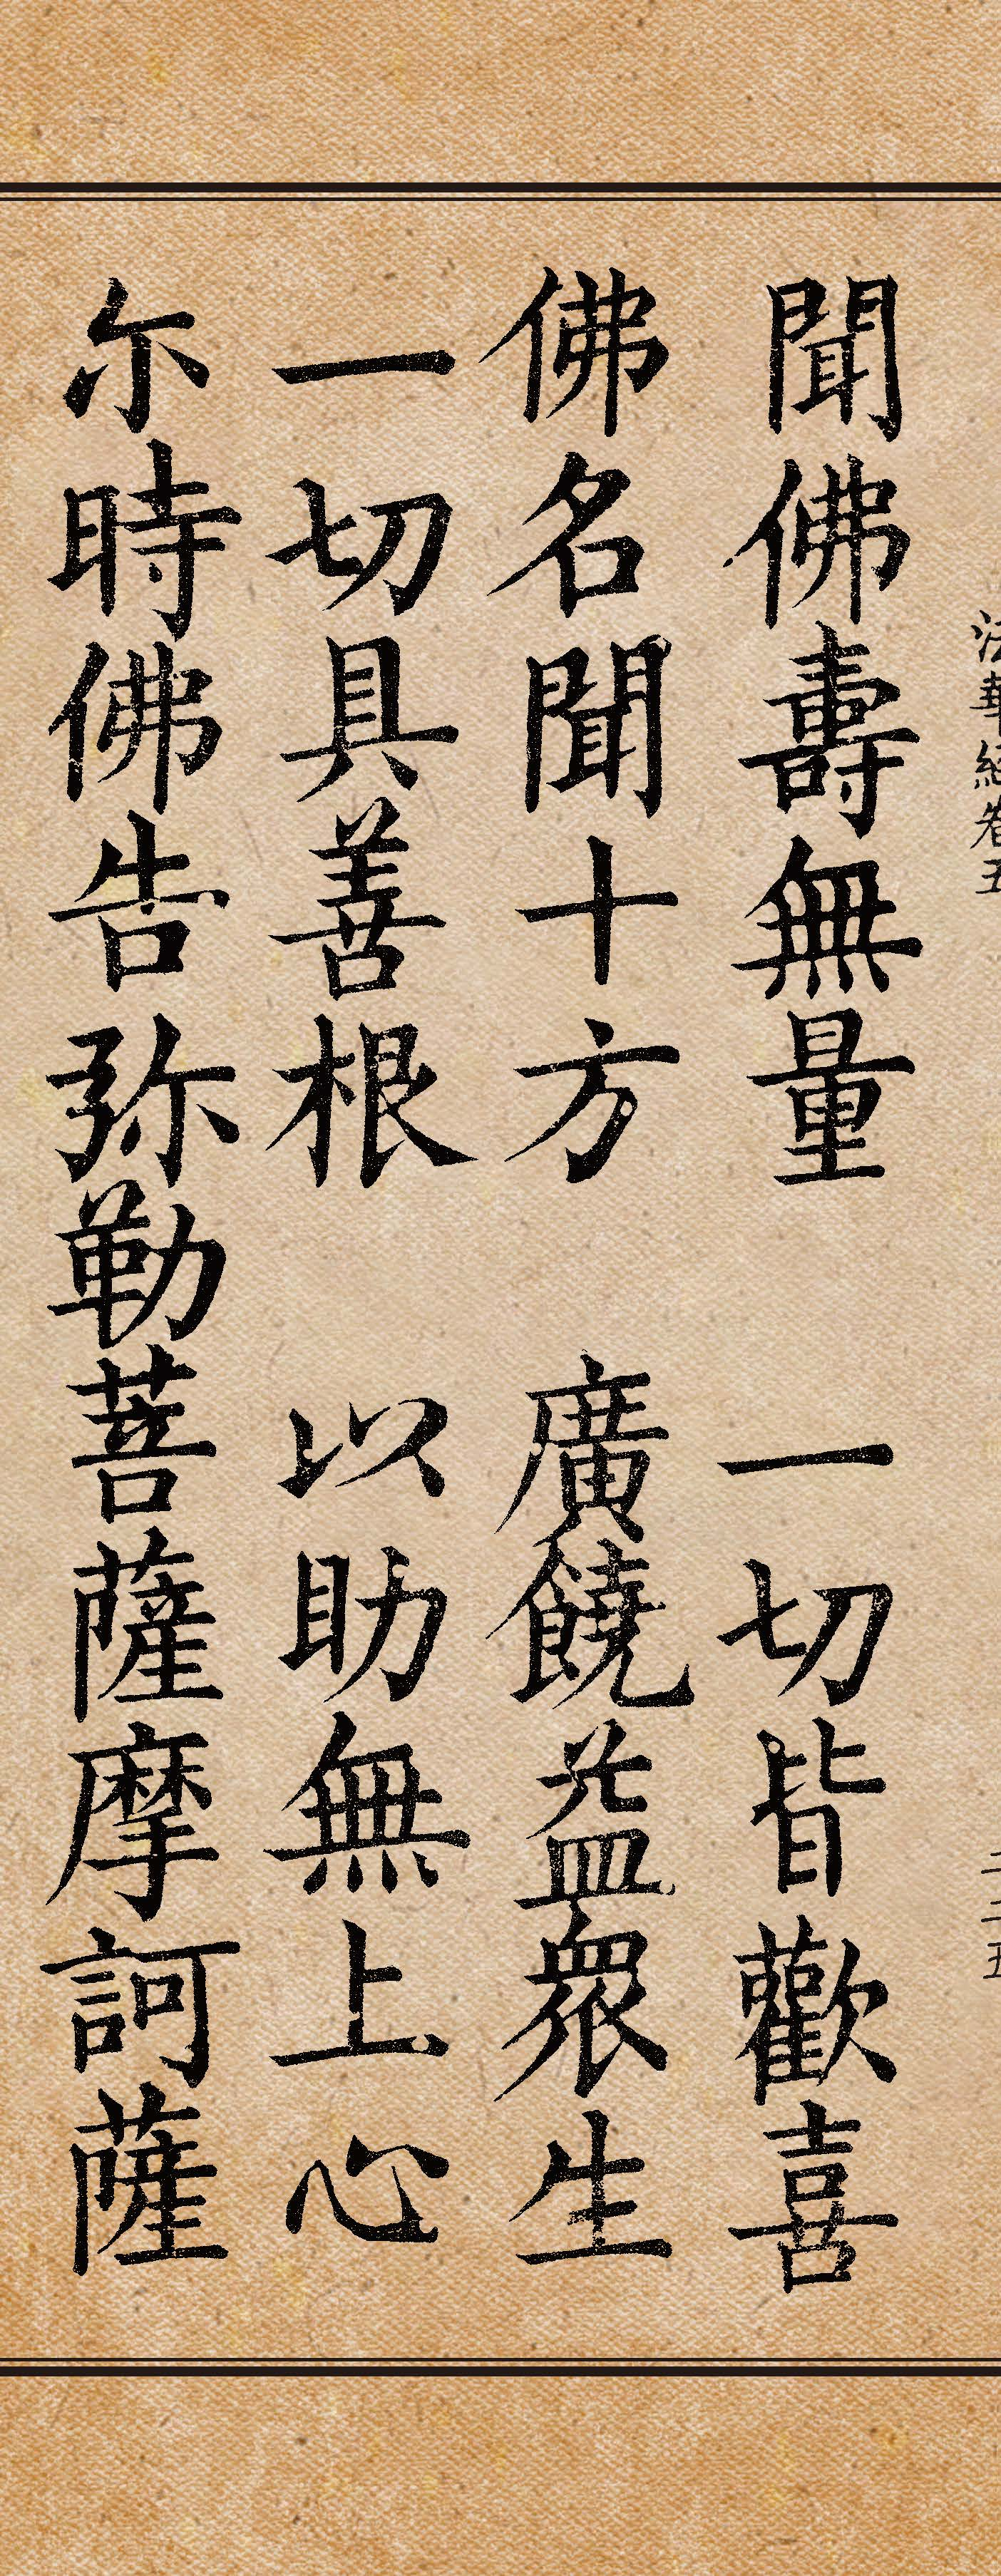 法華經卷五
二二五
聞佛壽無量　一切皆歡喜
佛名聞十方　廣饒益眾生
一切具善根　以助無上心
尔時佛告弥勒菩薩摩訶薩